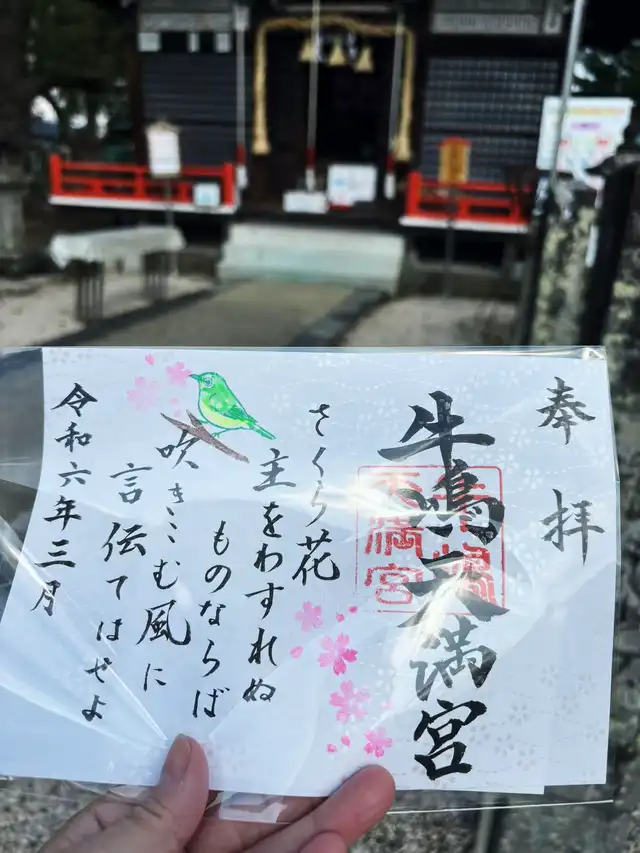 奉拝
牛嶋天満宮
牛嶋
天満宮
さくら花
主をわすれぬ
ものならば
吹きこむ風に
言伝てはせよ
令和六年三月